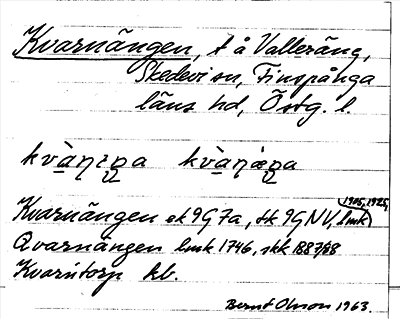 Kvarnängen, t å Valleräng,
Skedevi sn, Finspånga
läns hd, Östg. l.
kvàṇeṇa kvàṇæṇa
1905, 1925,
Kvarnängen ek 9G 7a, tk 9G NV, lmk
Qvarnängen lmk 1746, skk 1887/88
Kvarntorp kb.
Bernt Olsson 1963.